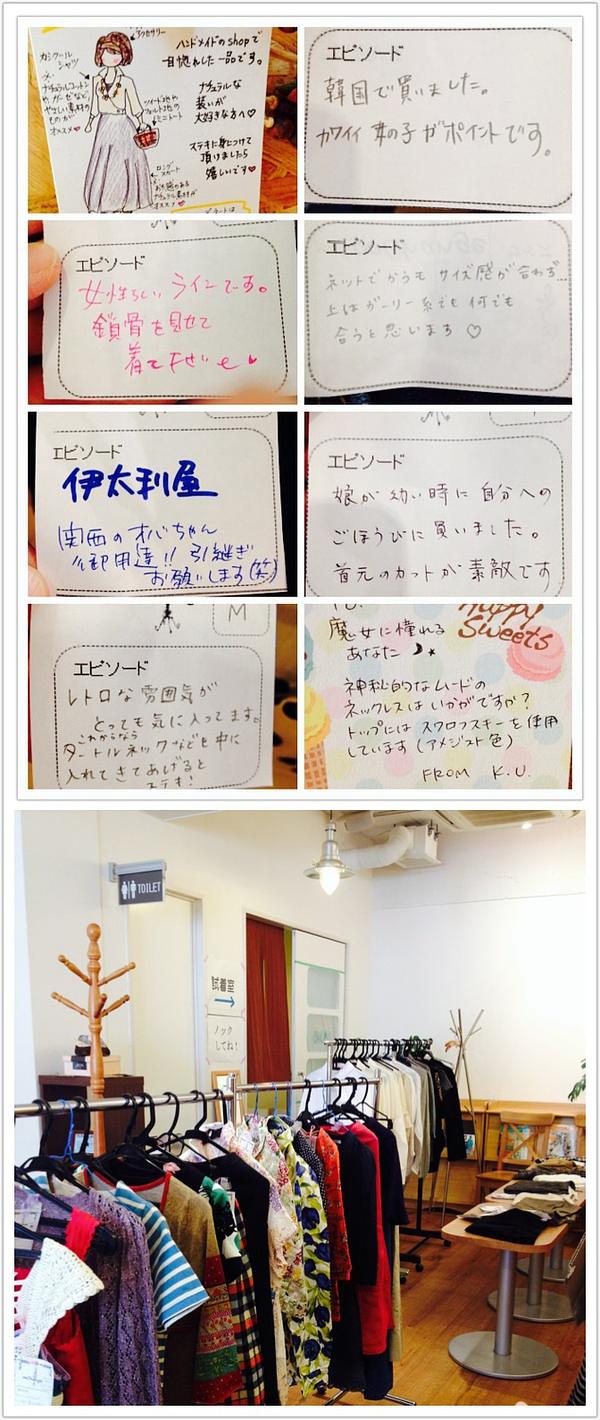 アクセサリー
カシクール
シャツ
ナチュラルコットン
やガーゼなど、
やさしい素材の
ものが
オススメ♥
ハンドメイドのshopで
一目惚れした一品です。
ナチュラルな
装いが
大好きな方へ♡
ステキに身につけて
頂けましたら
嬉しいです♥
ロング
スカート
ナチュラル素材が
オススメ♥
エピソード
韓国で買いました。
カワイイ 女の子がポイントです。
エピソード
女性らしい ラインです。
鎖骨を見せて
着て下さい
エピソード
ネットでかうもサイズ感が合わず…
上はガーリー系でも何でも
合うと思います ♡
エピソード
伊太利屋
関西のオバちゃん
御用達!! 引継ぎ
お願いします(笑)
エピソード
娘が幼い時に自分への
ごほうびに買いました。
首元のカットが素敵です
M
エピソード
レトロな雰囲気が
とっても気に入ってます。
これからなら
タートルネックなどを中に
入れてきてあげると
ステキ!
TO.
魔女に憧れる
あなた
Happy
Sweets
神秘的なムードの
ネックレスはいかがですか?
トップにはスワロフスキーを使用
しています(アメジスト色)
FROM K.U.
TOILET
試着室
→
ノック
してね!